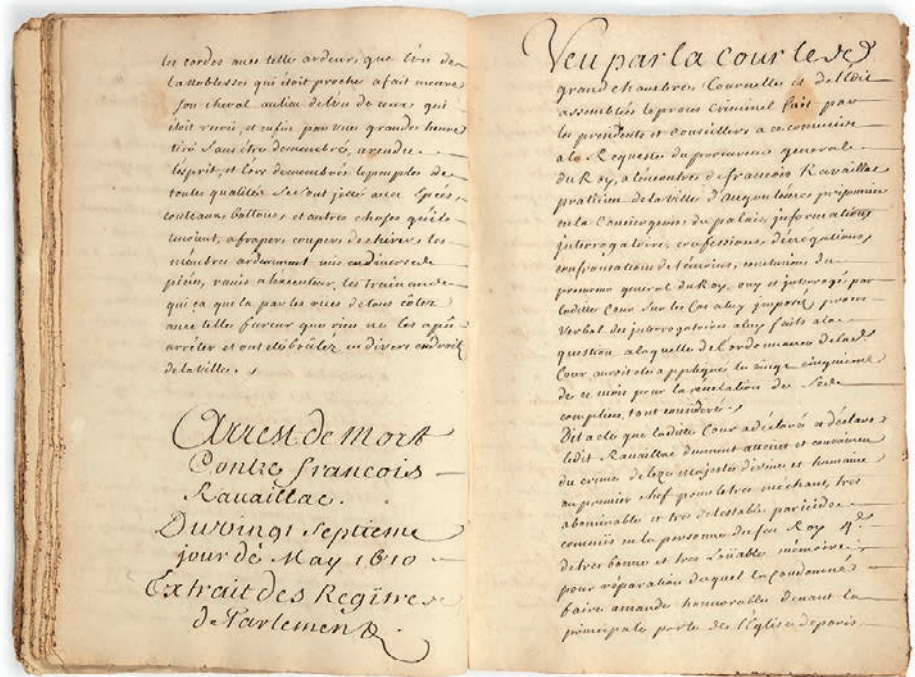 les cordes avec telle ardeur, que l'un de
la noblesse qui étoit proche a fait mettre
son cheval au lieu de l'un de ceux qui
étoit recrû, et enfin par une grande heure
tiré sans être demembré, a rendu
l'esprit, et lors demembré le peuple de
toutes qualitéz se sont jetéz avec épées,
couteaux, battons, et autres choses qu'ils
tenoient, a fraper, couper, deshirer les
membres ardemment mis en diverses
pieces, ravis a l'executeur, les trainant
qui ça qui la par les rues de tous côtez
avec telle fureur que rien ne les a pû
arrêter et ont été brûlez en divers endroit
de la ville.
Arrest de Mort
Contre francois
Ravaillac.
Du vingt septieme
jour de May 1610
Extrait des Registre
de Parlement
Veu par la cour les
grand chambre, Tournelle et de l'Edit
assemblées le proces criminel fait par
les presidents et conseillers a ce commis
a la Requeste du procureur general
du Roy, a l'encontre de francois Ravaillac
praticien de la ville d'angoulême prisonnier
en la Conciergerie du palais, informations
interrogatoire, confessions, denegations,
confrontations de témoins, conclusions du
procureur general du Roy, ouy et interrogé par
laditte Cour sur les cas a luy imposéz, proces
verbal des interrogatoires a luy faits a la
question a laquelle de l'ordonnance de lad.
Cour auroit été appliqué le vingt cinquieme
de ce mois pour la revelation de ses
complices, tout consideré.
Dit a été que laditte Cour a déclaré et déclare
ledit Ravaillac duement atteint et convaincu
du crime de leze majesté divine et humaine
au premier chef pour le tres méchant, tres
abominable et tres detestable paricide
commis en la personne du feu Roy 4.
de tres bonne et tres loüable mémoire
pour réparation duquel l'a condamné
faire amande honnorable devant la
principale porte de l'Eglise de paris